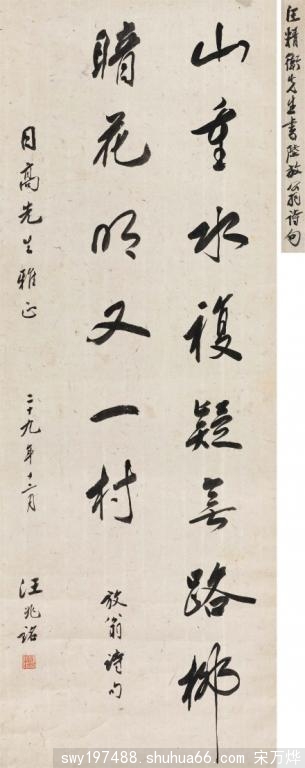 汪精衛先生書陸放翁詩句
山重水複疑無路柳
暗花明又一村
放翁詩句
目高先生雅正
二十九年十二月
汪兆銘
swy197488.shuhua66.com 宋万烨